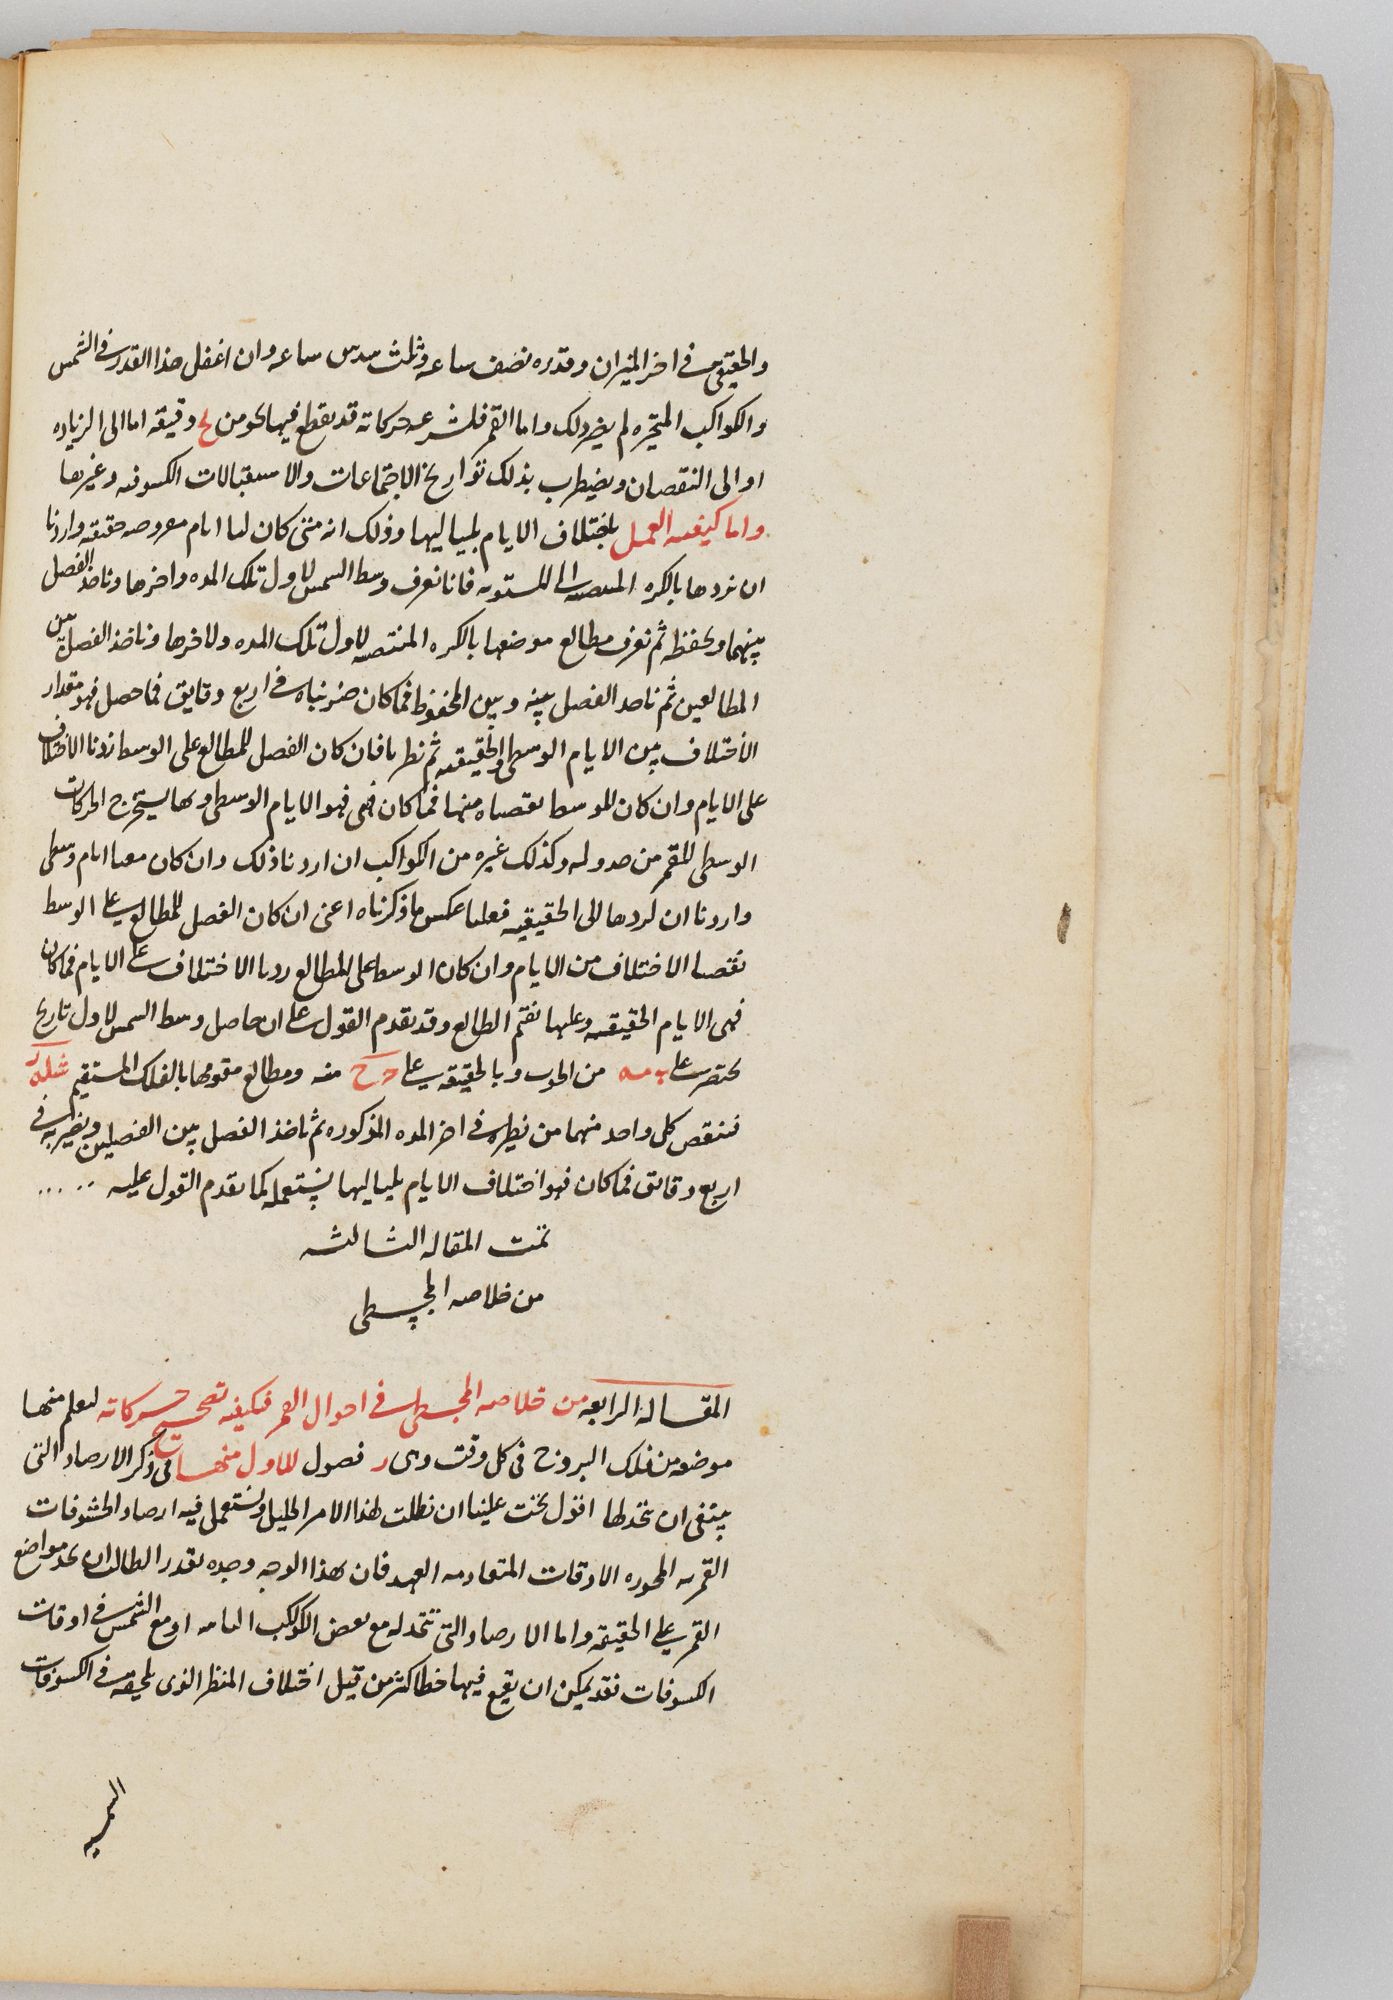 والحقيقى فى اخر الميزان وقدره نصف ساعه وثلث سدس ساعه وان اغفل هذا القدر فى الشمس
والكواكب المتحيره لم يضر ذلك واما القمر فلسرعه حركاته قد يقطع فيها نحو من لح دقيقه اما الى الزياده
او الى النقصان ويضطرب بذلك تواريخ الاجتماعات والاستقبالات الكسوفيه وغيرها
واما كيفيه العمل باختلاف الايام بلياليها وذلك انه متى كان لنا ايام مفروضه حقيقيه واردنا
ان نردها بالكره المنتصبه الى المستويه فانا نعرف وسط الشمس لاول تلك المده واخرها وناخذ الفضل
بينهما ونحفظه ثم نعرف مطالع موضعها بالكره المنتصبه لاول تلك المده ولاخرها وناخذ الفضل بين
المطالعين ثم ناخذ الفضل بينه وبين المحفوظ فما كان ضربناه فى اربع دقايق فما حصل فهو مقدار
الاختلاف بين الايام الوسطى والحقيقيه ثم نظرنا فان كان الفضل للمطالع على الوسط زدنا الاختلاف
على الايام وان كان للوسط نقصناه منها فما كان فهى فهو الايام الوسطى وبها يستخرج الحركات
الوسطى للقمر من جدوله وكذلك غيره من الكواكب ان اردنا ذلك وان كان معنا ايام وسطى
واردنا ان نردها الى الحقيقيه فعلنا عكس ما ذكرناه اعنى ان كان الفضل للمطالع على الوسط
نقصنا الاختلاف من الايام وان كان الوسط على المطالع زدنا الاختلاف على الايام فما كان
فهى الايام الحقيقيه وعليها نقيم الطالع وقد تقدم القول على ان حاصل وسط الشمس لاول تاريخ
بختنصر على مه من الحوت وبالحقيقه على ح منه ومطالع مقومها بالفلك المستقيم
فننقص كل واحد منهما من نظيره فى اخر المده المذكوره ثم ناخذ الفضل بين الفضلين ونضربه فى
اربع دقائق فما كان فهو اختلاف الايام بلياليها نستعمله كما تقدم القول عليه
تمت المقاله الثالثه
من خلاصه المجسطى
المقاله الرابعه من خلاصه المجسطى فى احوال القمر فى كيفيه تصحيح حركاته ليعلم منها
موضعه من فلك البروج فى كل وقت وهى ر فصول الاول منها فى ذكر الارصاد التى
ينبغى ان نتخذ لها اقول يجب علينا ان نطلب لهذا الامر الجليل ونستعمل فيه ارصاد الخسوفات
القمريه المحرره الاوقات المتقادمه العهد فان بهذا الوجه وحده يقدر الطالب ان يجد مواضع
القمر على الحقيقه واما الارصاد التى تتخذ له مع بعض الكواكب الثابته او مع الشمس فى اوقات
الكسوفات فقد يمكن ان يقع فيها خطا كثر من قبل اختلاف المنظر الذى يلحقه فى الكسوفات
الشمسيه